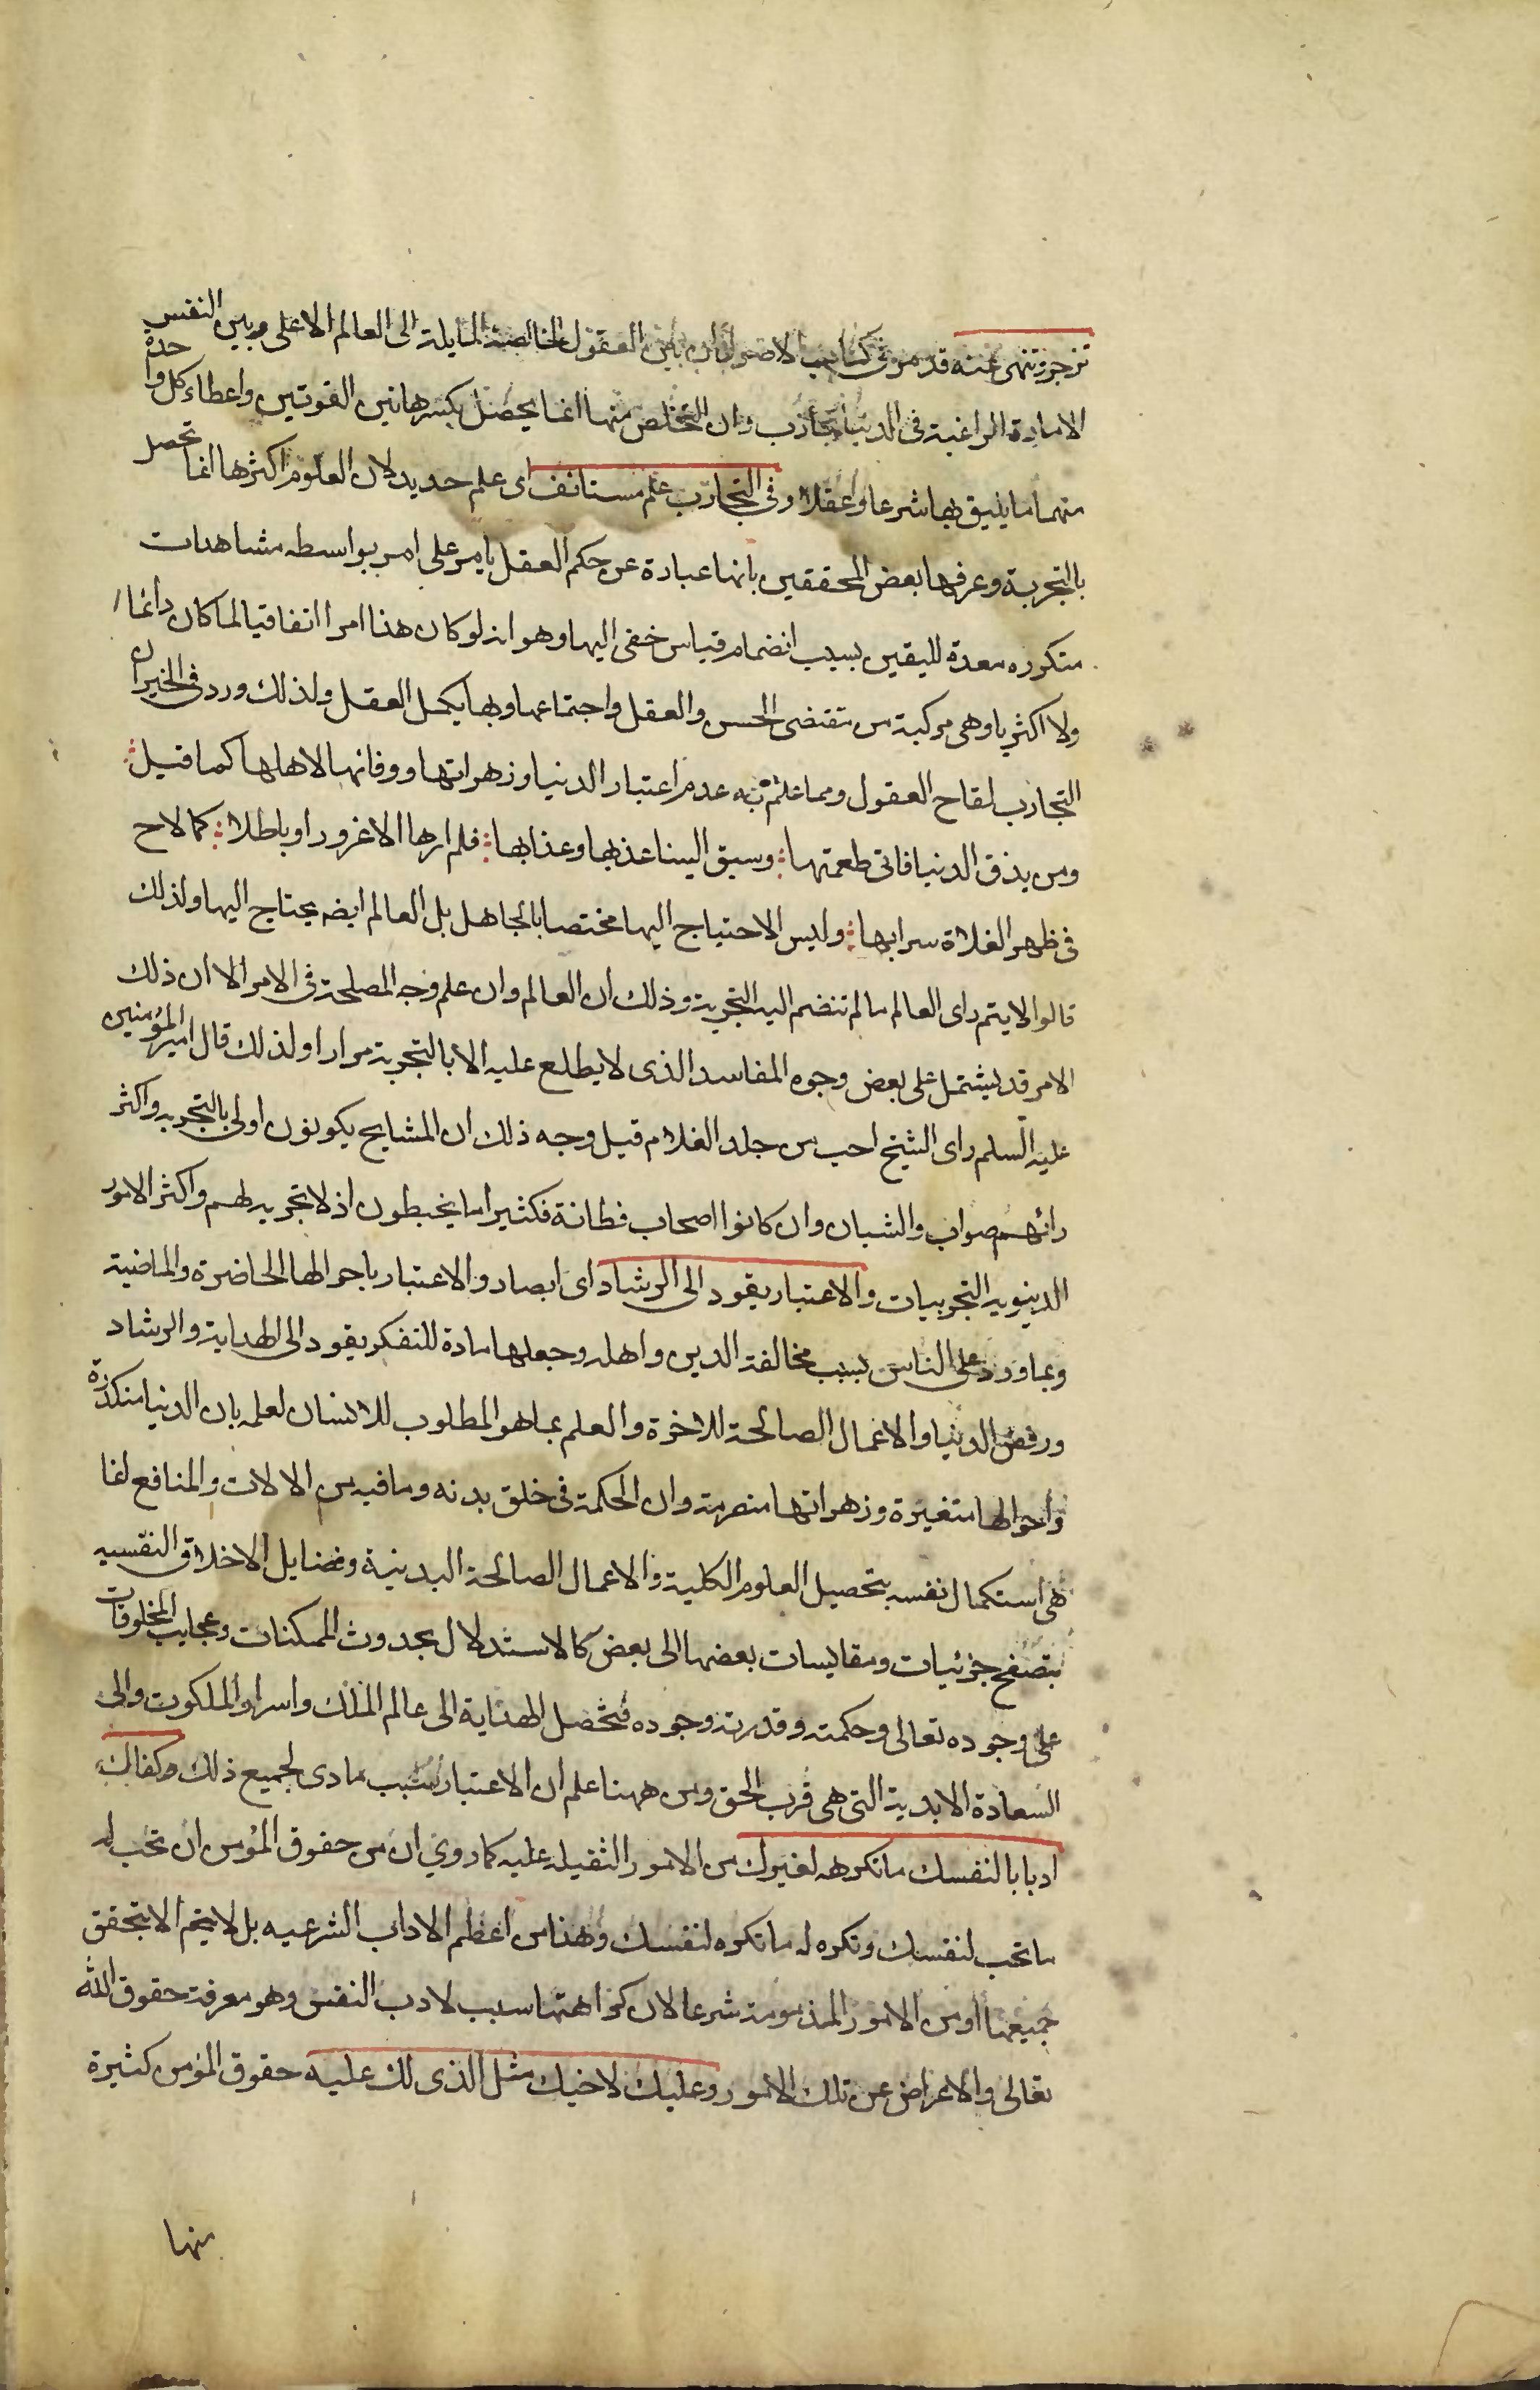 تزجر وتنهى عنه قد مر في كتاب الاصول ان بين العقول الخالصة المايلة الى العالم الاعلى وبين النفس
الامارة الراغبة في الدنيا تجاذب وان التخلص منها انما يحصل بكسر هاتين القوتين واعطاء كل واحدة
منهما ما يليق بها شرعا وعقلا وفي التجارب علم مستانف اى علم جديد لان العلوم اكثرها انما تحصل
بالتجربة وعرفها بعض المحققين بانها عبارة عن حكم العقل بامر على امر بواسطه مشاهدات
متكرره معدة لليقين بسبب انضمام قياس خفى اليها وهو انه لو كان هذا امرا اتفاقيا لما كان دائما
ولا اكثريا وهى مركبة من مقتضى الحس والعقل واجتماعها وبها يكمل العقل ولذلك ورد في الخبر ان
التجارب لقاح العقول ومما علم به عدم اعتبار الدنيا وزهراتها ووفائها لاهلها كما قيل
ومن يذق الدنيا فانى طعمتها وسيق الينا عذبها وعذابها فلم ارها الا غرورا وباطلا كما لاح
في ظهر الفلاة سرابها وليس الاحتياج اليها مختصا بالجاهل بل العالم ايضه يحتاج اليها ولذلك
قالوا لا يتم راى العالم ما لم تنضم اليه التجربة وذلك ان العالم وان علم وجه المصلحة في الامر الا ان ذلك
الامر قد يشتمل على بعض وجوه المفاسد الذى لا يطلع عليه الا بالتجربة مرارا ولذلك قال امير المؤمنين
عليه السلم راى الشيخ احب من جلد الغلام قيل وجه ذلك ان المشايح يكونون اولى بالتجربه واكثر
رائهم صواب والشبان وان كانوا اصحاب فطانة فكثيرا ما يخبطون اذ لا تجربه لهم واكثر الامور
الدينويه التجربيات والاعتبار يقود الى الرشاد اى ابصار والاعتبار باحوالها الحاضرة والماضية
وبما ورد على الناس بسبب مخالفة الدين واهله وجعلها مادة للتفكر يقود الى الهداية والرشاد
ورفض الدنيا والاعمال الصالحة للاخرة والعلم بما هو المطلوب للانسان لعلمه بان الدنيا منكدرة
واحوالها متغيرة وزهراتها منصرمة وان الحكمة في خلق بدنه وما فيه من الالات والمنافع انما
هى استكمال نفسه بتحصيل العلوم الكلية والاعمال الصالحة البدنية وفضايل الاخلاق النفسيه
بتصفح جزئيات ومقايسات بعضها الى بعض كالاستدلال بحدوث الممكنات وعجايب المخلوقات
على وجوده تعالى وحكمته وقدرته وجوده فتحصل الهداية الى عالم الملك واسرار الملكوت والى
السعادة الابدية التى هى قرب الحق ومن ههنا علم ان الاعتبار سبب مادى لجميع ذلك وكفاك
ادبابا لنفسك ما تكرهه لغيرك من الامور الثقيله عليه كما روي ان من حقوق المؤمن ان تحب له
ما تحب لنفسك وتكره له ما تكره لنفسك وهذا من اعظم الاداب الشرعيه بل لا يتم الا بتحقق
جميعها او من الامور المذمومة شرعا لان كراهتها سبب لادب النفس وهو معرفة حقوق الله
تعالى والاعراض عن تلك الامور وعليك لاخيك مثل الذى لك عليه حقوق المؤمن كثيرة
منها